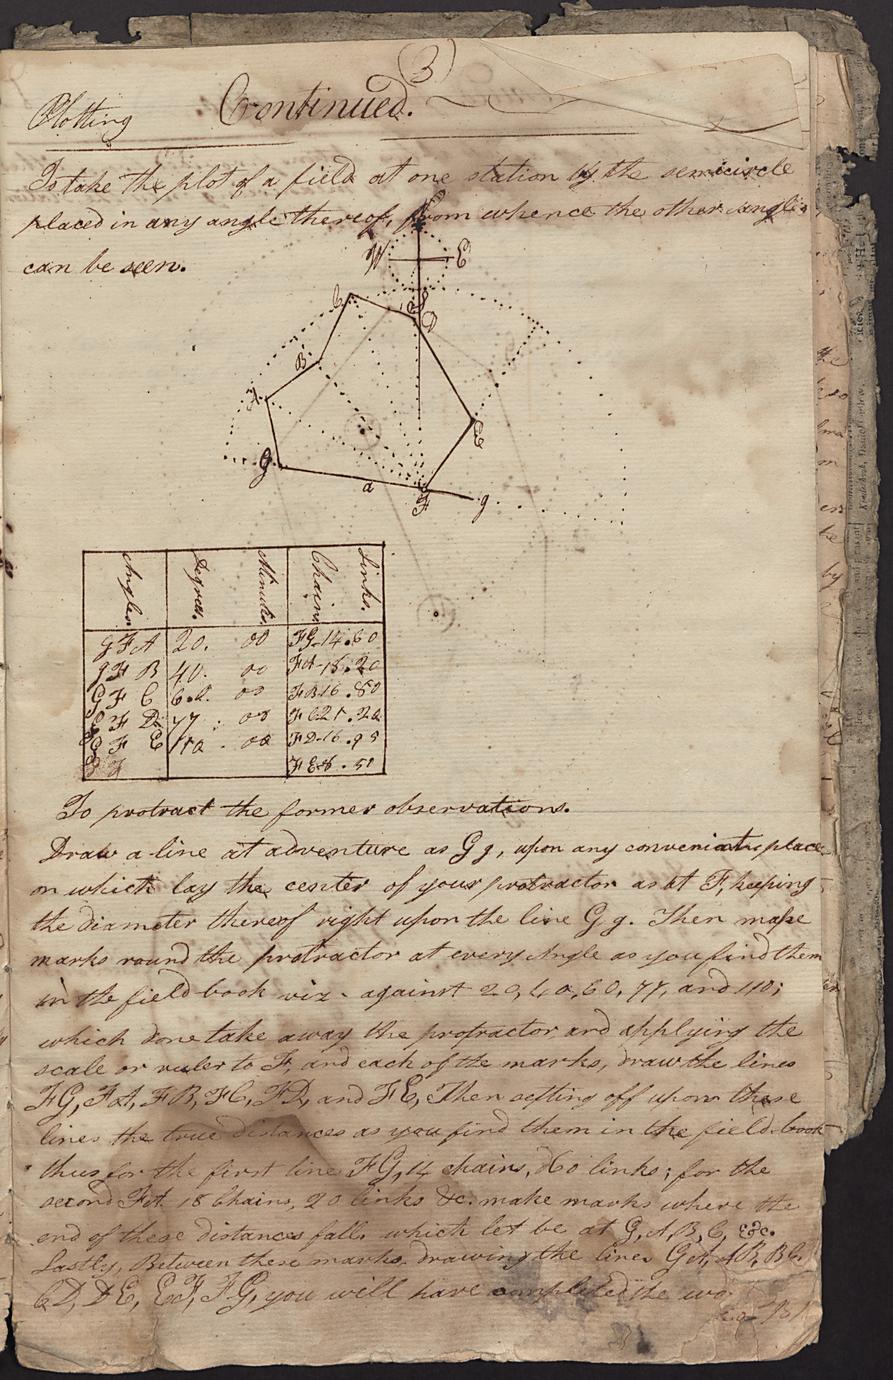 (3)
Plotting Continued.
To take the plot of a field at one station by the semicircle
placed in any angle thereof, from whence the other angles
can be seen.
W E
S
C D
B
A
E
G
a
F g
Angles. Degrees. Minutes. Chains. Links.
GFA 20. 00 FG-14.60
GFB 40. 00 FA-18.20
GFC 60. 00 FB-16.80
GFD 77. 00 FC21.20
GFE 110. 00 FD-16.95
FE8.50
To protract the former observations.
Draw a line at adventure as Gg, upon any convenient place
on which lay the center of your protractor as at F, keeping
the diameter thereof right upon the line Gg. Then make
marks round the protractor at every Angle as you find them
in the field book viz. against 20, 40, 60, 77, and 110;
which done take away the protractor, and applying the
scale or ruler to F, and each of the marks, draw the lines
FG, FA, FB, FC, FD, and FE, Then setting off upon these
lines the true distances as you find them in the field book
thus for the first line FG, 14 chains, 60 links; for the
second FA 18 Chains, 20 links &c. make marks where the
end of these distances fall, which let be at G, A, B, C, &c.
Lastly, Between these marks, drawing the lines GA, AB, BC.
CD, DE, EF, FG, you will have completed the wo